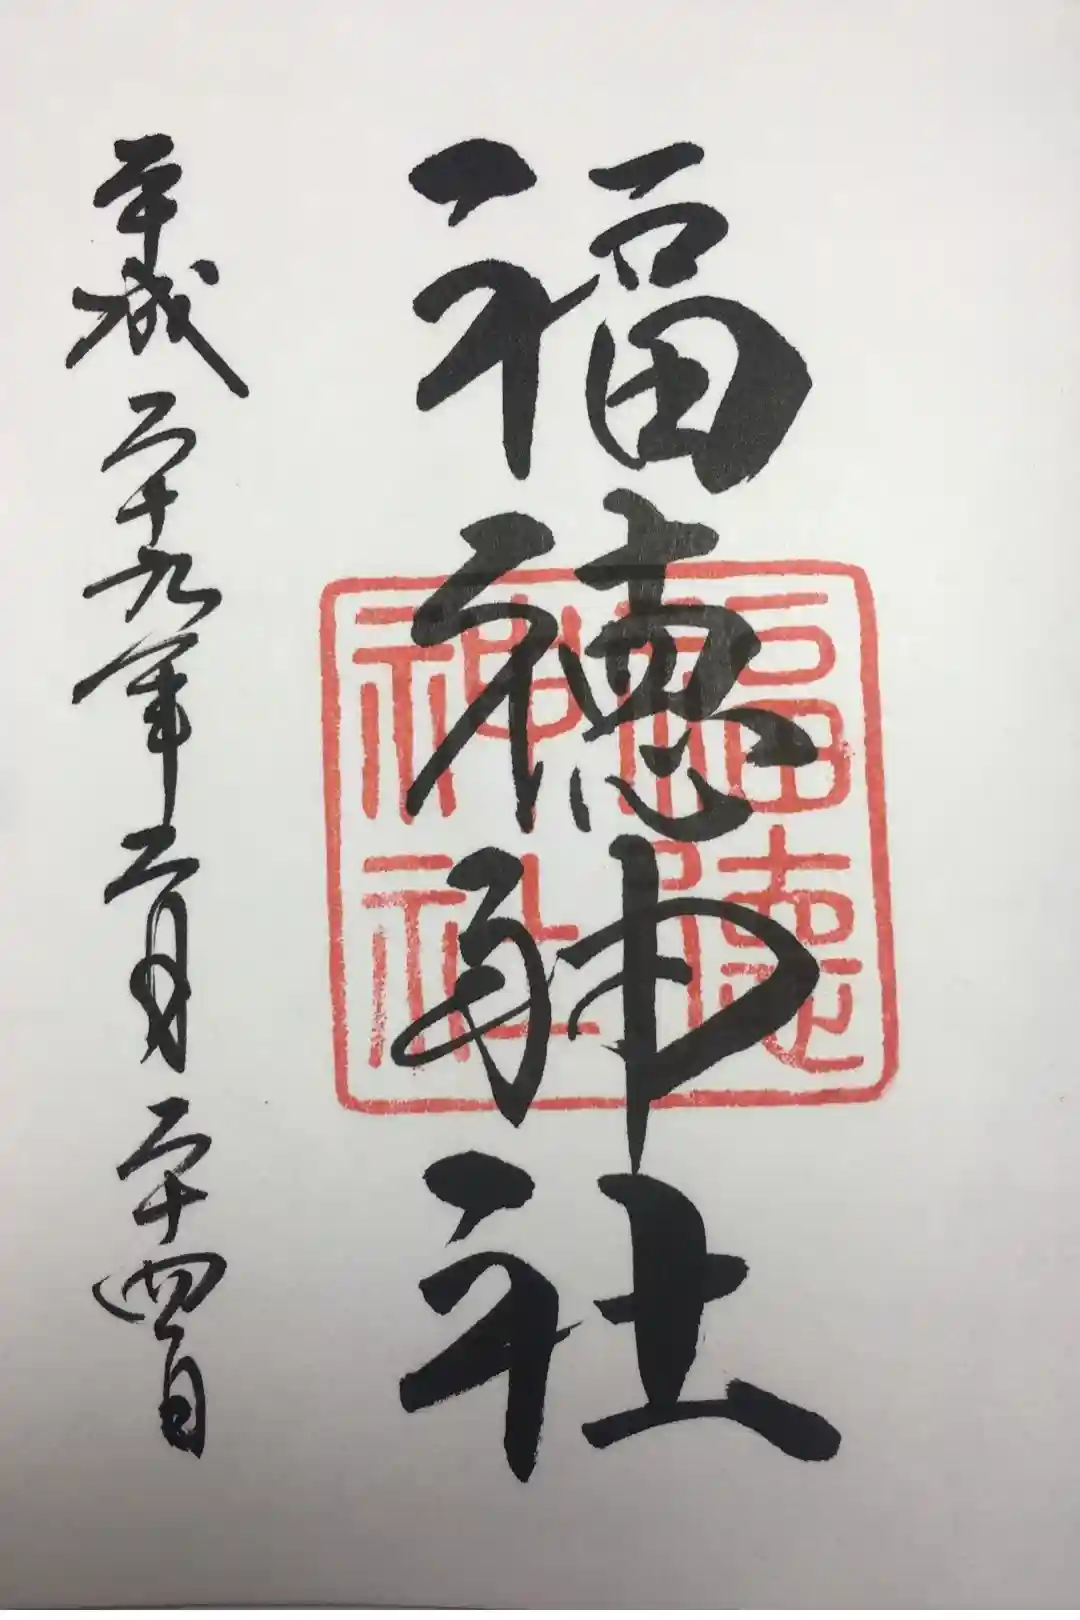 福徳神社
福徳
神社
平成二十九年二月二十四日